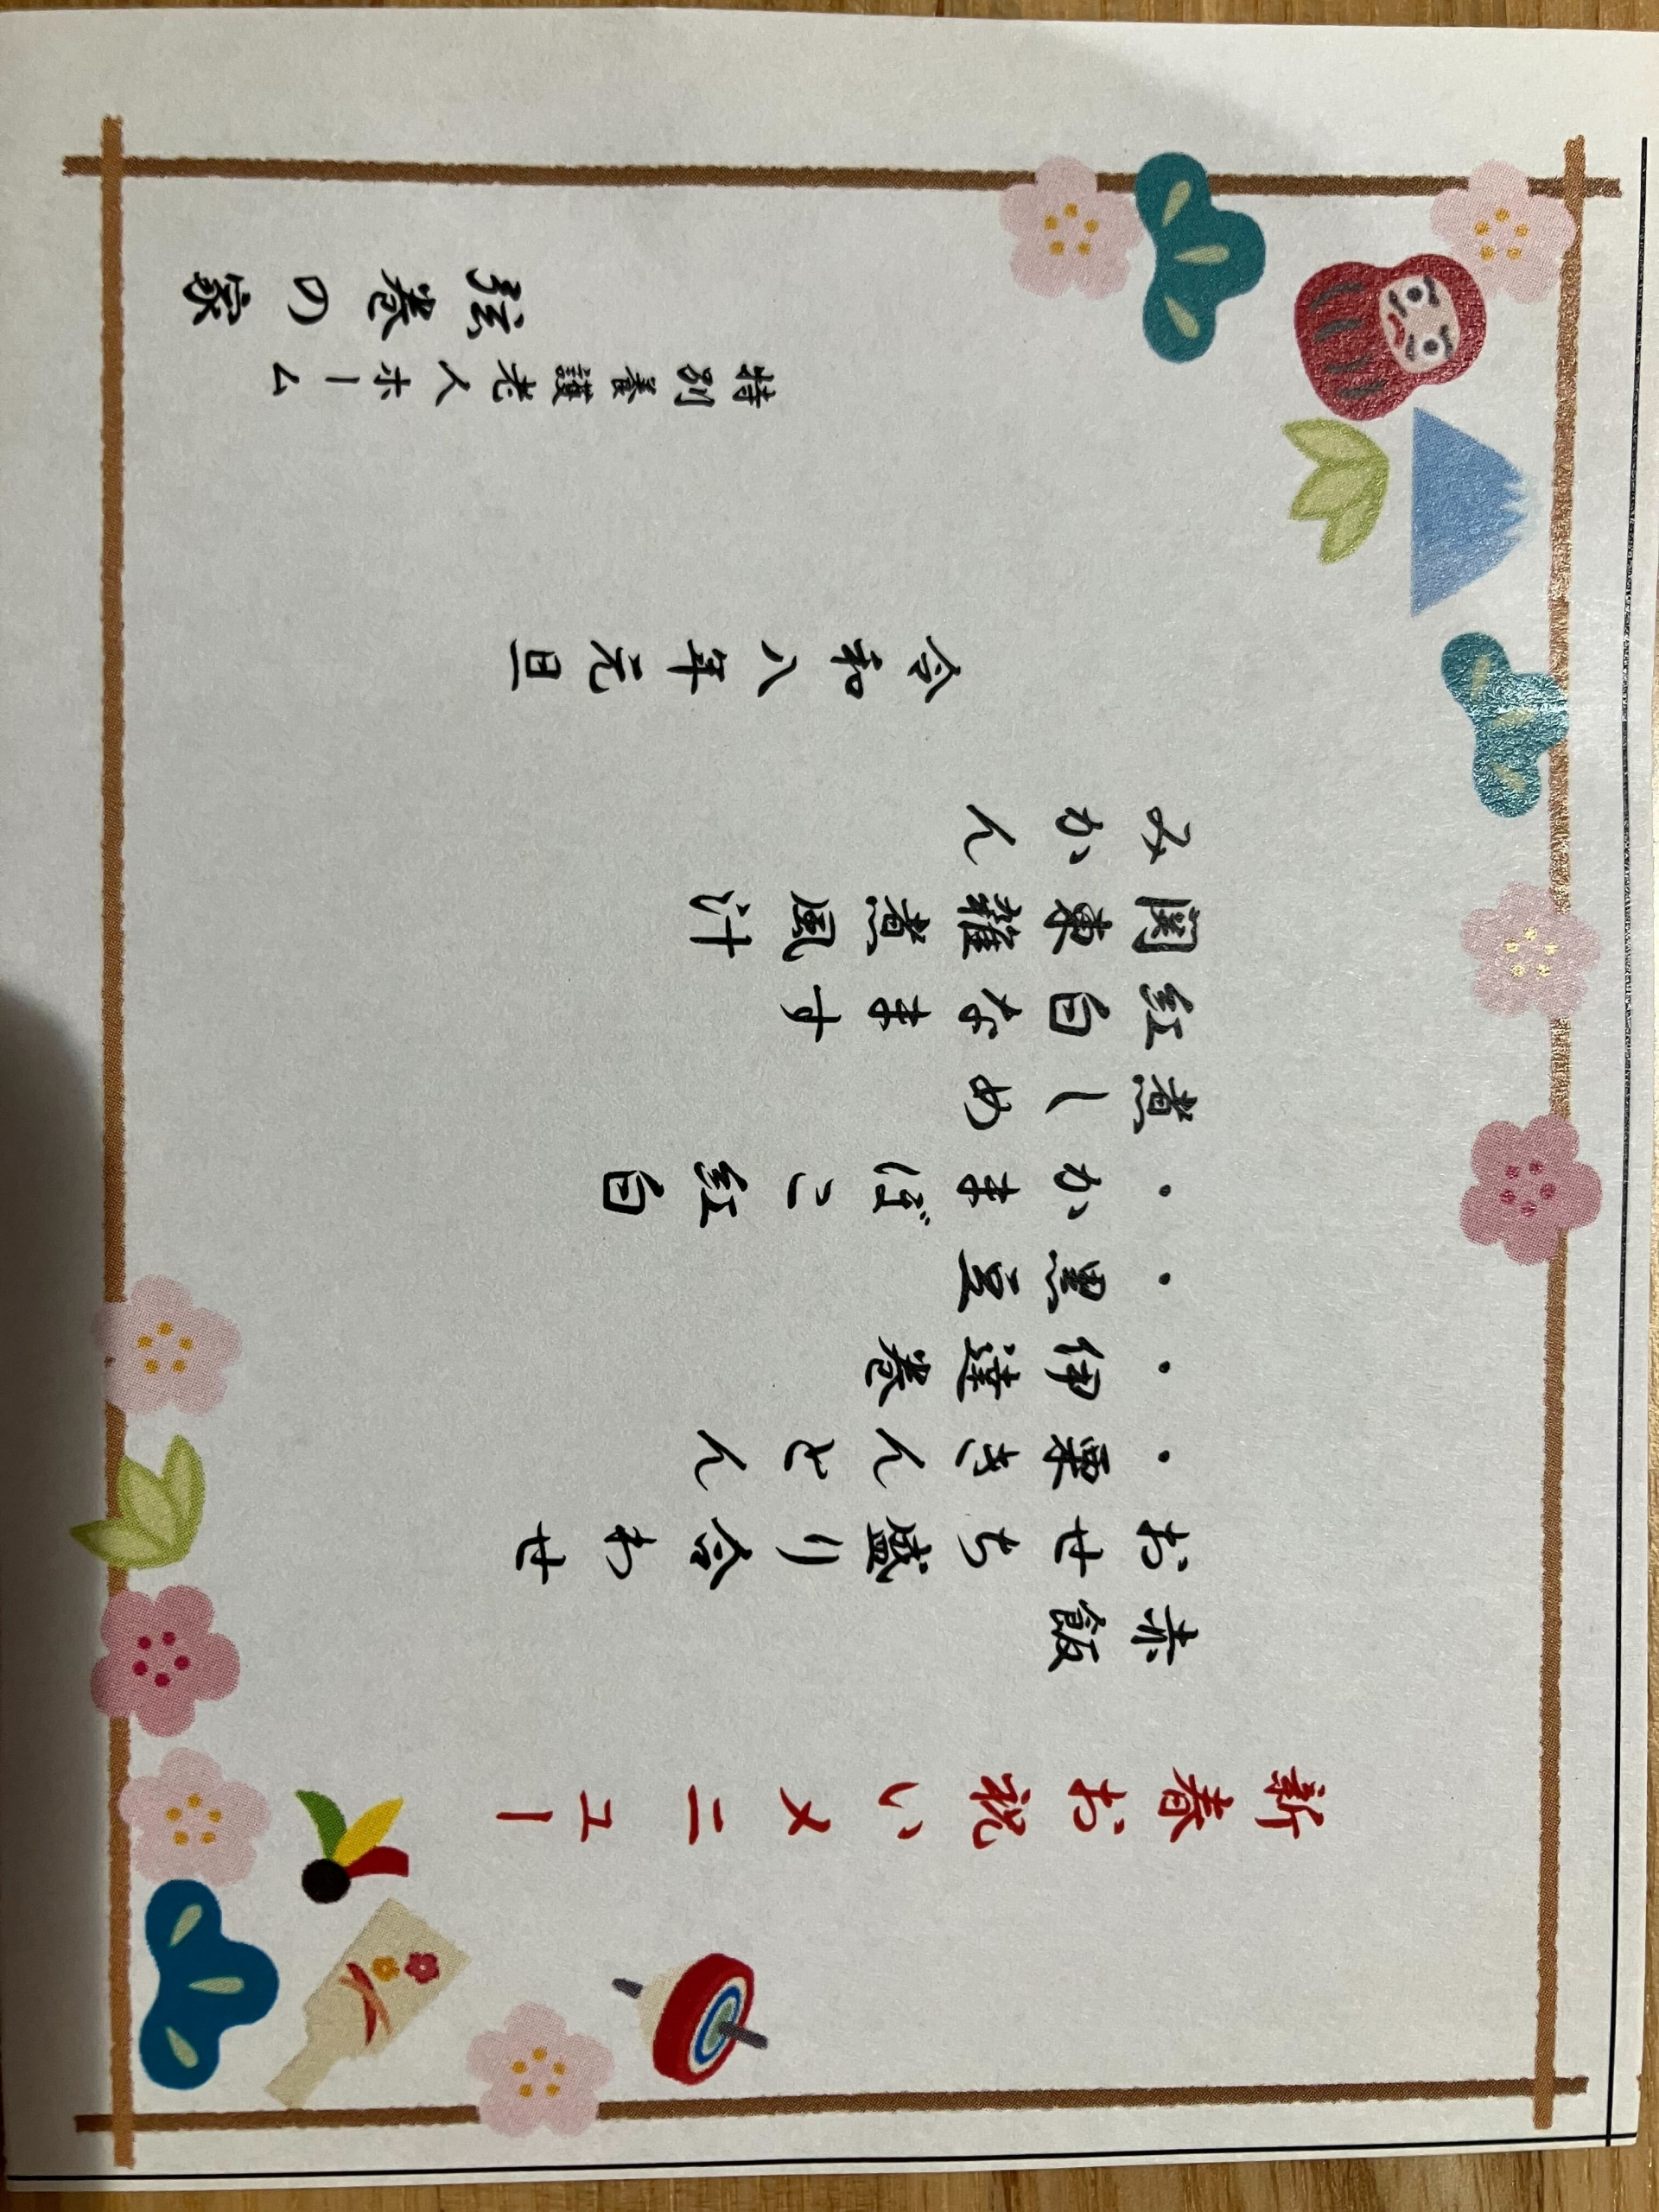 新春お祝いメニュー
赤飯
おせち盛り合わせ
・栗きんとん
・伊達巻
・黒豆
・かまぼこ紅白
煮しめ
紅白なます
関東雑煮風汁
みかん
令和八年元旦
特別養護老人ホーム
弦巻の家